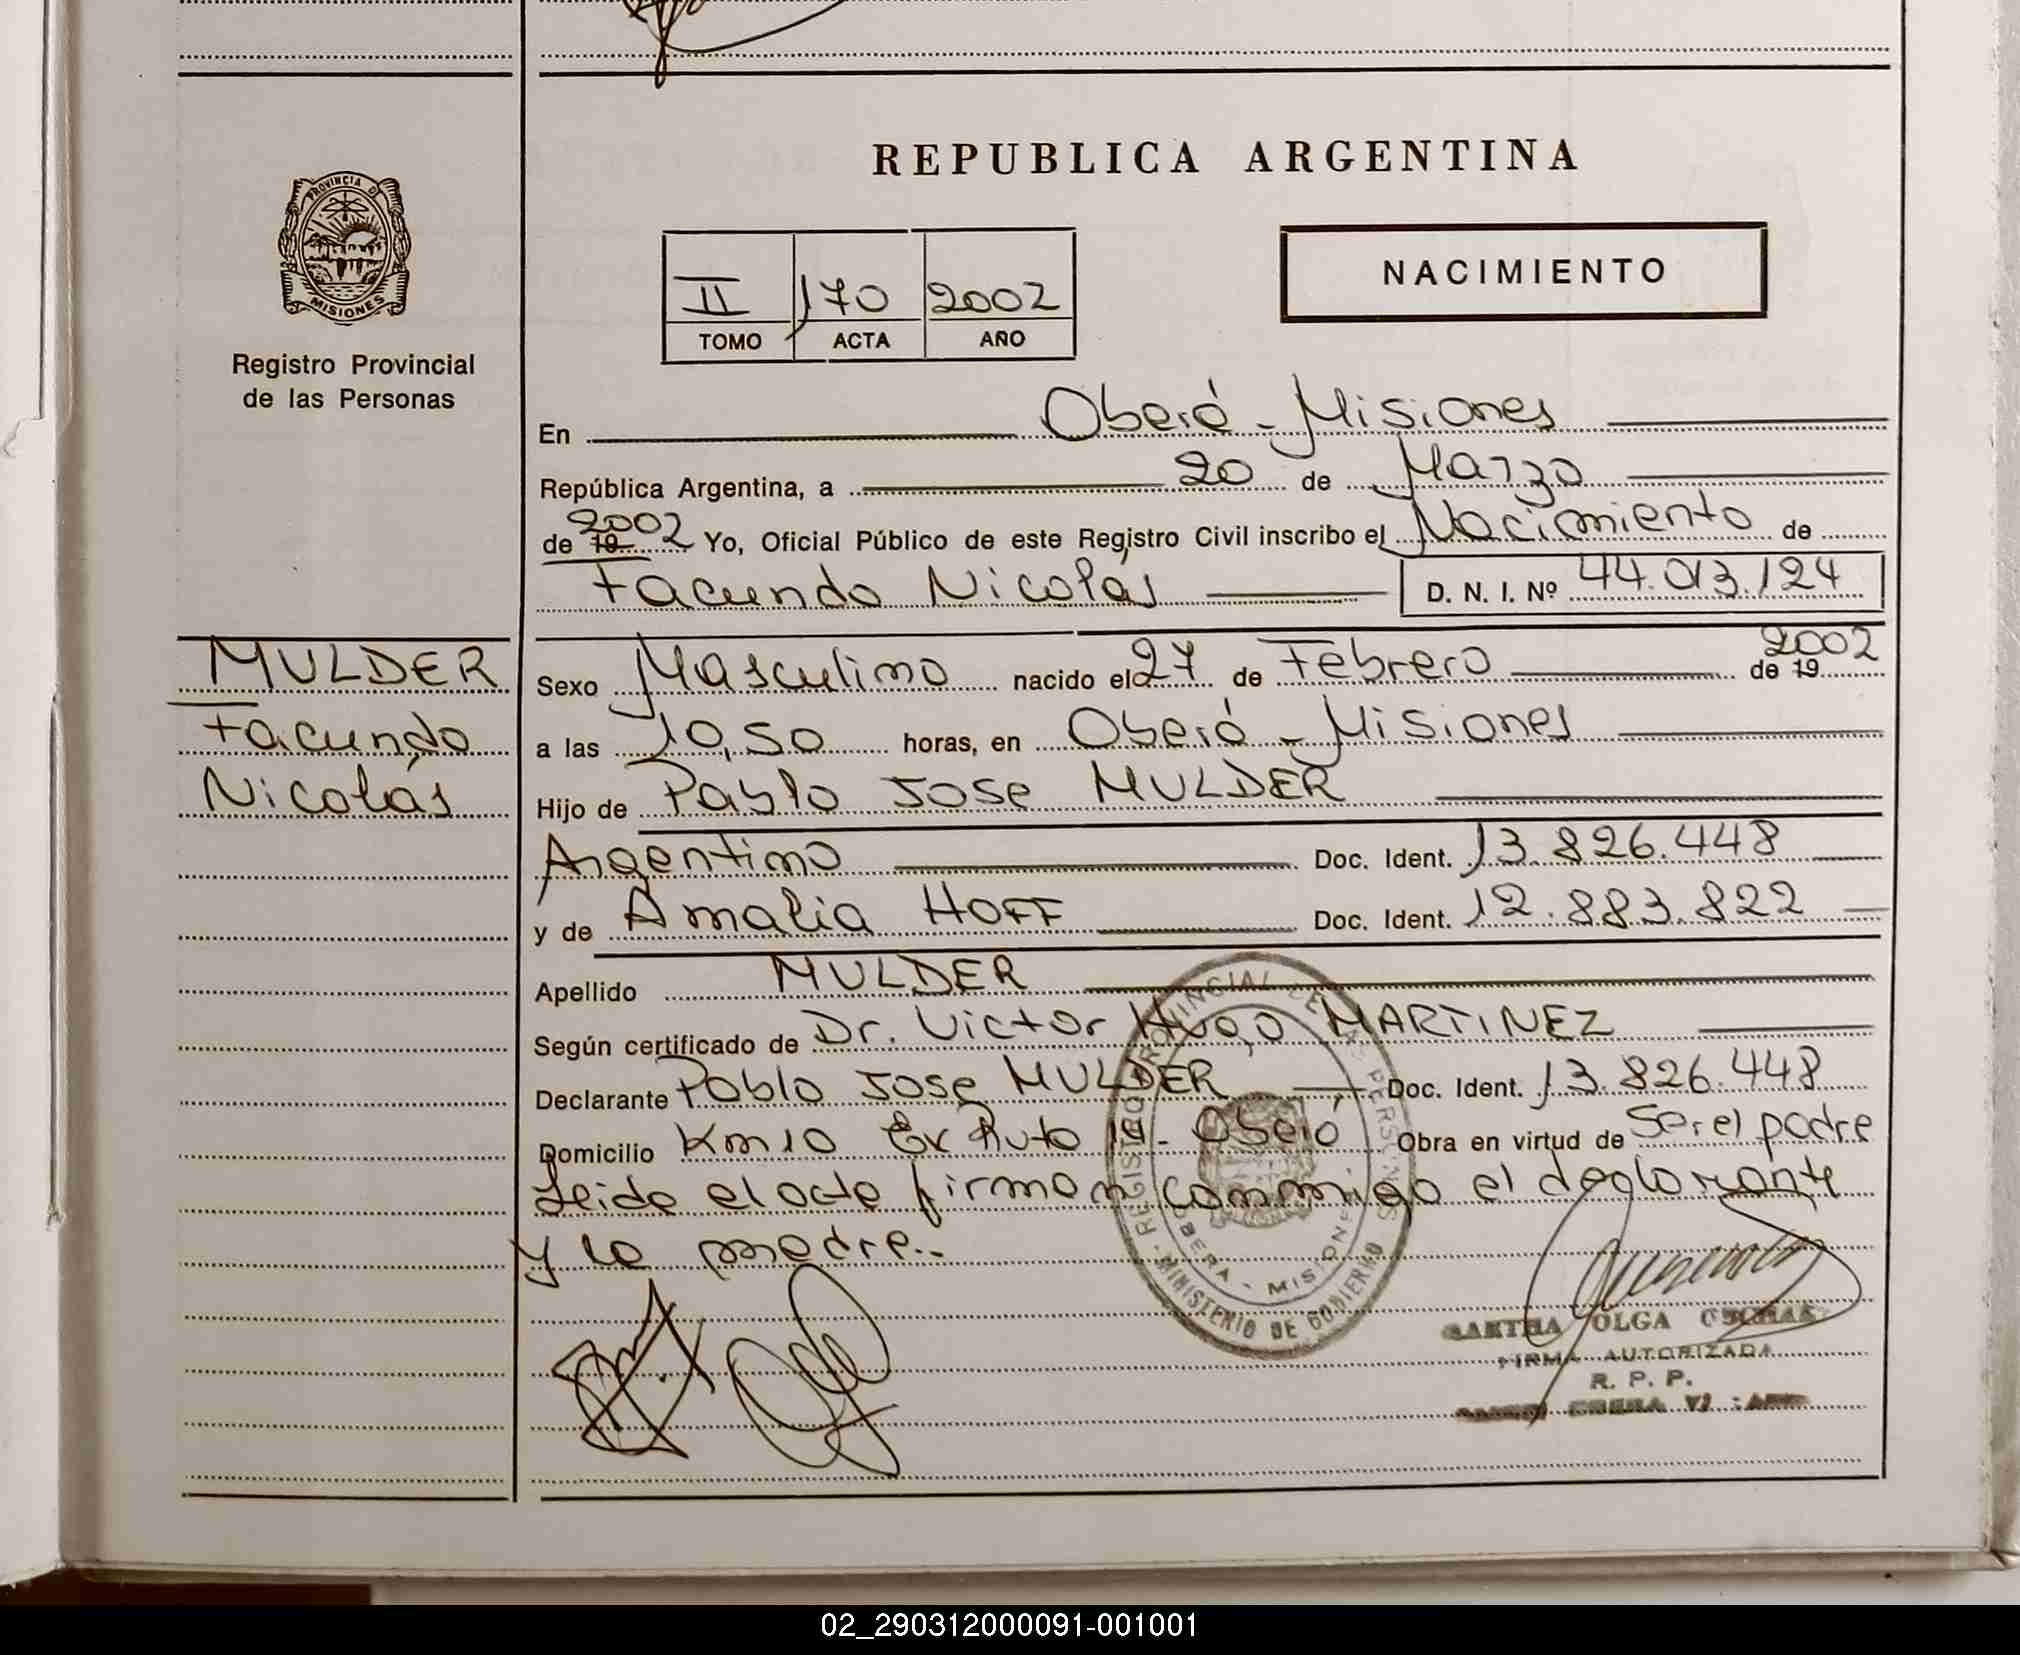 REPUBLICA ARGENTINA
PROVINCIA D
MISIONES
Registro Provincial
de las Personas
II 170 2002
TOMO ACTA AÑO
NACIMIENTO
En Oberá - Misiones
República Argentina, a 20 de Marzo
de 19 2002 Yo, Oficial Público de este Registro Civil inscribo el Nacimiento de
Facundo Nicolás D. N. I. Nº 44.013.124
MULDER
Facundo
Nicolás
Sexo Masculino nacido el 27 de Febrero de 19 2002
a las 10,50 horas, en Oberá - Misiones
Hijo de Pablo Jose MULDER
Argentino Doc. Ident. 13.826.448
y de Amalia HOFF Doc. Ident. 12.883.822
Apellido MULDER
Según certificado de Dr. Victor Hugo MARTINEZ
Declarante Pablo Jose MULDER Doc. Ident. 13.826.448
Domicilio Km 10 Ex Ruta 14 - Oberá Obra en virtud de Ser el padre
Leida el acta firman conmigo el declarante
y la madre..
REGISTRO PROVINCIAL DE LAS PERSONAS
OBERA - MISIONES
MINISTERIO DE GOBIERNO
OLGA
FIRMA AUTORIZADA
R. P. P.
02_290312000091-001001